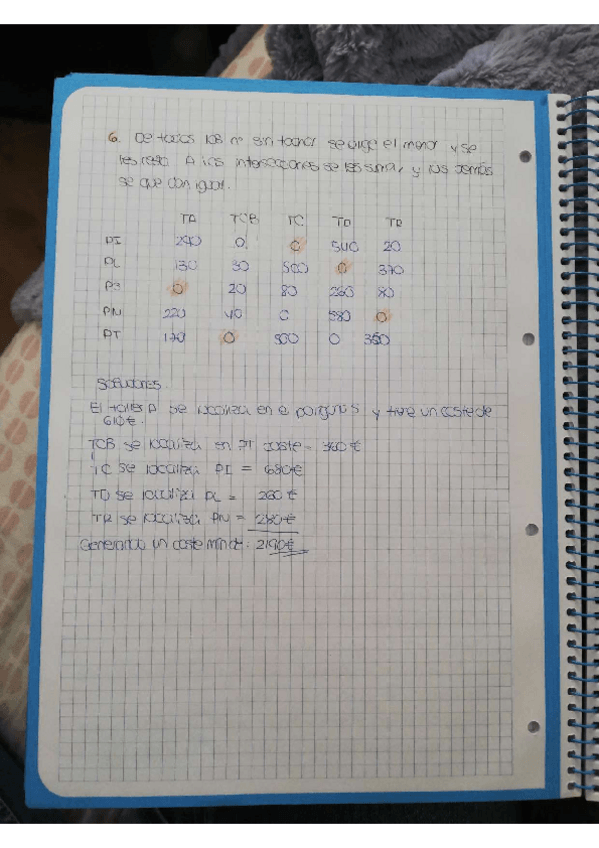 6. De todos los nº sin tachar se elige el menor y se
les resta. A las intersecciones se les suma y los demás
se quedan igual.
TA TCB TC TD TR
PI 240 0 0 540 20
PL 130 30 500 0 370
P3 0 20 80 260 80
PN 220 40 0 580 0
PT 170 0 500 0 360
Soluciones.
El taller A se localiza en el polígono S y tiene un coste de
610€.
TCB se localiza en PT coste = 360€
TC se localiza PI = 680€
TD se localiza PL = 260€
TR se localiza PN = 280€
Generando un coste mín de: 2190€